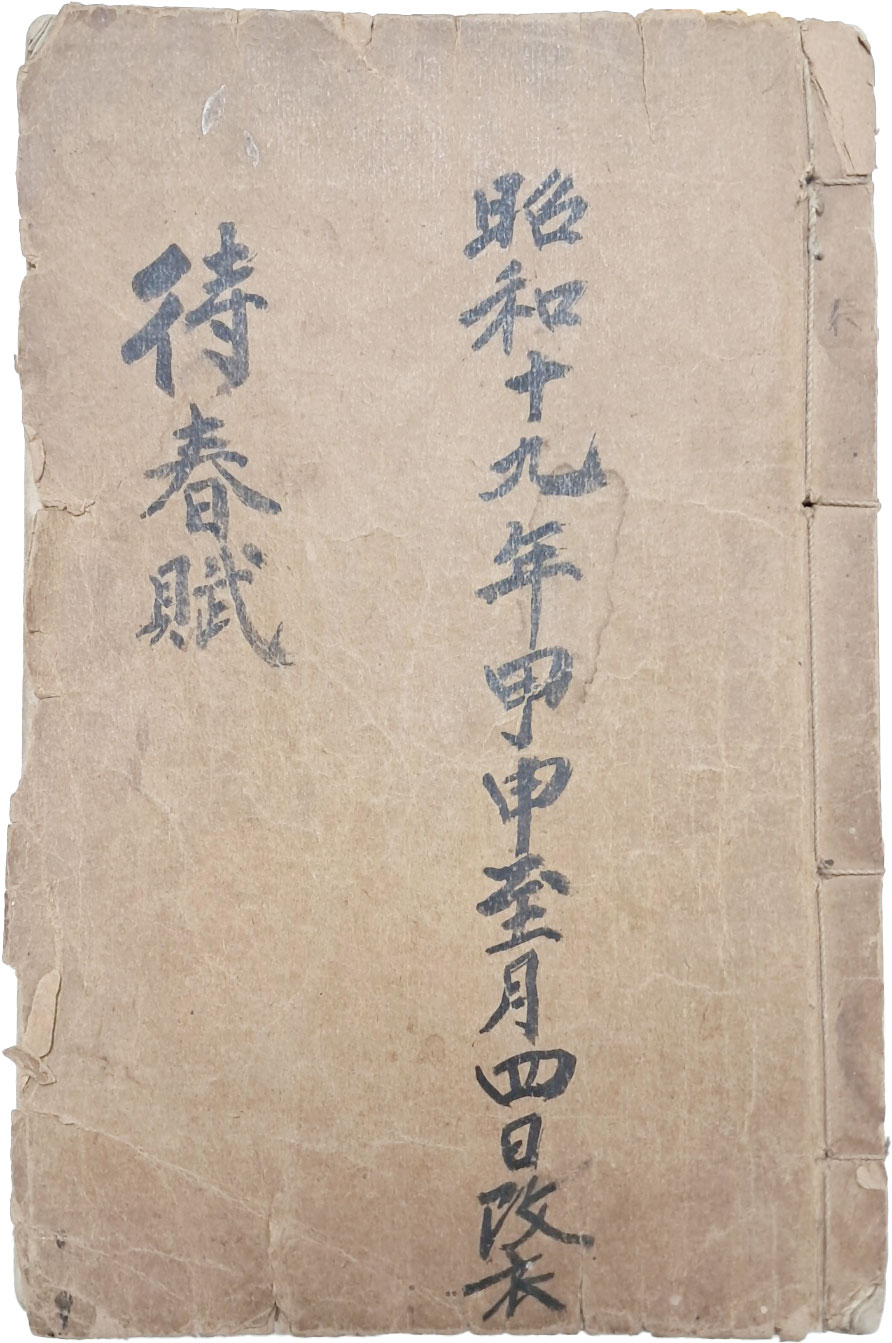 昭和十九年甲申至月四日改衣
待春賦